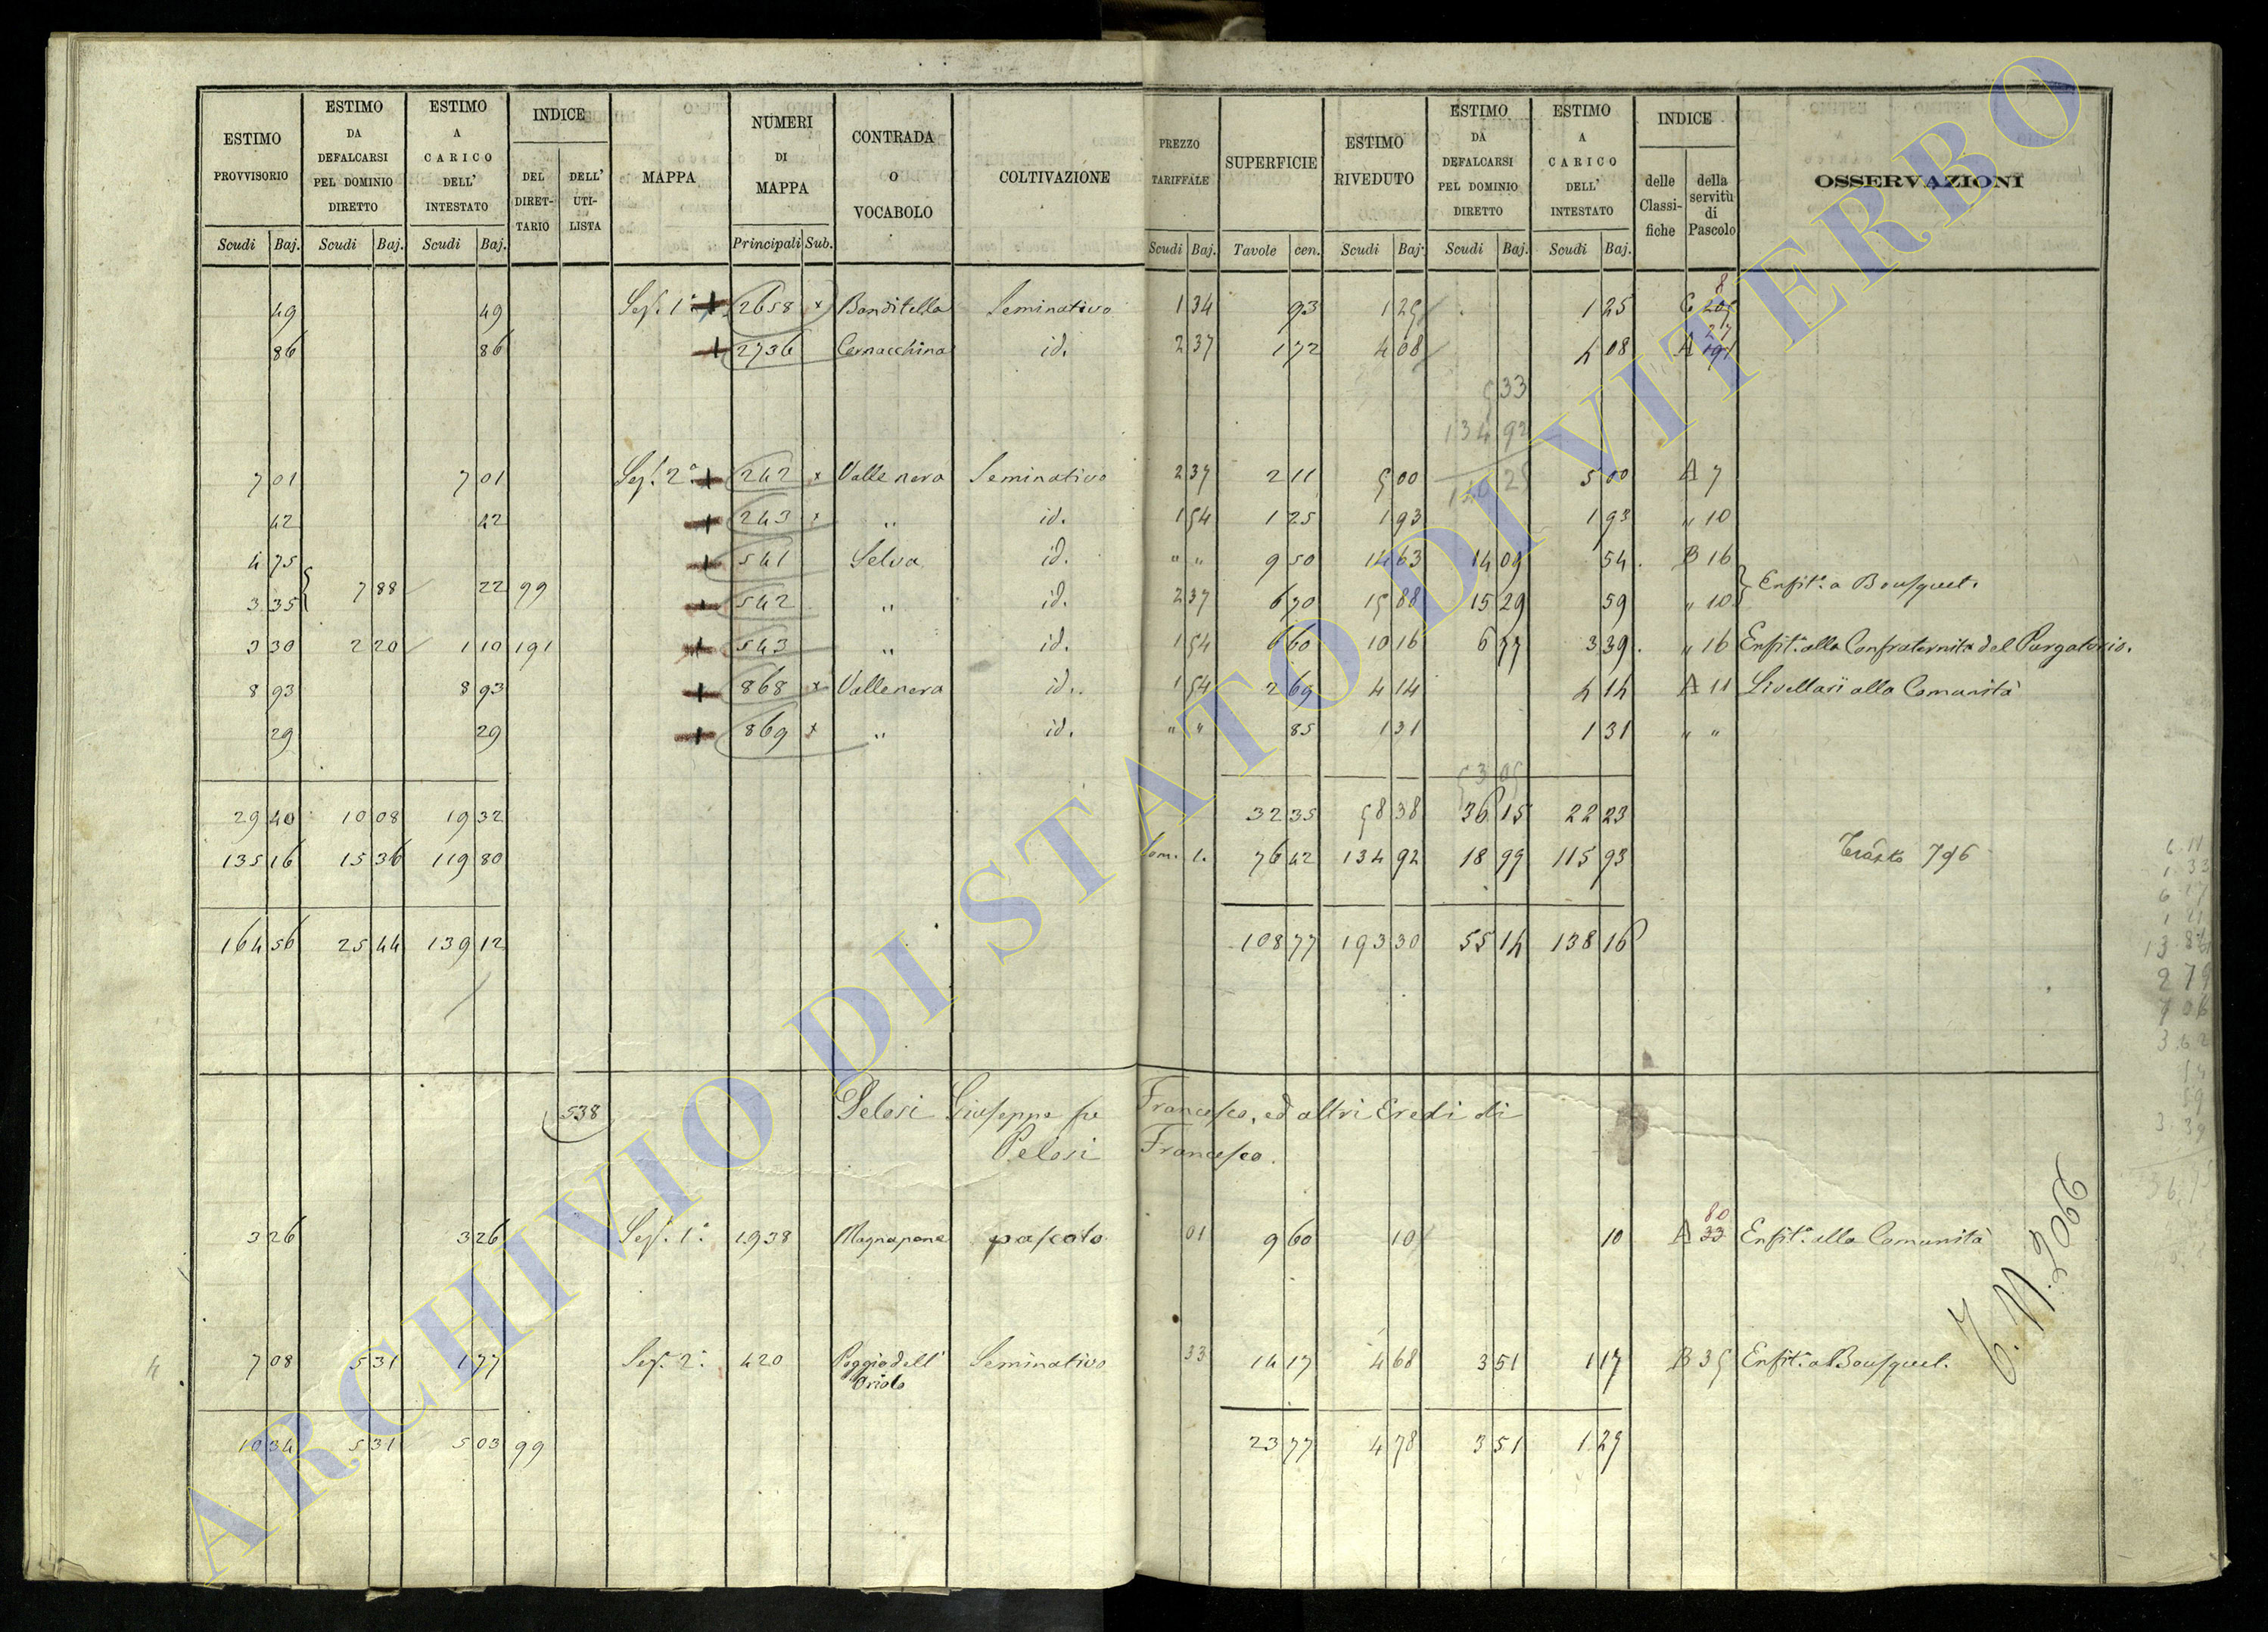 ESTIMO PROVVISORIO | ESTIMO DA DEFALCARSI PEL DOMINIO DIRETTO | ESTIMO A CARICO DELL' INTESTATO | INDICE | MAPPA | NUMERI DI MAPPA | CONTRADA O VOCABOLO | COLTIVAZIONE | PREZZO TARIFFALE | SUPERFICIE | ESTIMO RIVEDUTO | ESTIMO DA DEFALCARSI PEL DOMINIO DIRETTO | ESTIMO A CARICO DELL' INTESTATO | INDICE | OSSERVAZIONI
DEL DIRETTARIO | DELL' UTILISTA | delle Classifiche | della servitù di Pascolo
Scudi Baj. | Scudi Baj. | Scudi Baj. | Principali Sub. | Scudi Baj. | Tavole cen. | Scudi Baj. | Scudi Baj. | Scudi Baj.
49 | 49 | Sez. 1ª | 2658 x | Banditella | Seminativo | 1 34 | 93 | 1 25 | 1 25 | C 205 8
86 | 86 | 2736 | Cernacchina | id. | 2 37 | 1 72 | 4 08 | 4 08 | A 191 27
5 33
134 92
7 01 | 7 01 | Sez. 2ª | 242 x | Valle nera | Seminativo | 2 37 | 2 11 | 5 00 | 5 00 | A 7
42 | 42 | 243 x | " | id. | 1 54 | 1 25 | 1 93 | 1 93 | " 10
4 75 | 541 | Selva | id. | " " | 9 50 | 14 63 | 14 09 | 54 | B 16
3 35 | 7 88 | 22 | 99 | 542 | " | id. | 2 37 | 6 70 | 15 88 | 15 29 | 59 | " 10 | Enfit. a Bousquet.
3 30 | 2 20 | 1 10 | 191 | 543 | " | id. | 1 54 | 6 60 | 10 16 | 6 77 | 3 39 | " 16 | Enfit. alla Confraternita del Purgatorio.
8 93 | 8 93 | 868 x | Vallenera | id. | 1 54 | 2 69 | 4 14 | 4 14 | A 11 | Livellari alla Comunità
29 | 29 | 869 x | " | id. | " " | 85 | 1 31 | 1 31 | " "
29 40 | 10 08 | 19 32 | 32 35 | 58 38 | 36 15 | 22 23
135 16 | 15 36 | 119 80 | Som. 1. | 76 42 | 134 92 | 18 99 | 115 93 | 796
164 56 | 25 44 | 139 12 | 108 77 | 193 30 | 55 14 | 138 16
538 | Pelosi Giuseppe fu Francesco, ed altri Eredi di
Pelosi Francesco.
3 26 | 3 26 | Sez. 1ª | 1938 | Magnapane | pascolo | 01 | 9 60 | 10 | 10 | A 33 80 | Enfit. alla Comunità
7 08 | 5 31 | 1 77 | Sez. 2ª | 420 | Poggio dell' Oriolo | Seminativo | 33 | 14 17 | 4 68 | 3 51 | 1 17 | B 35 | Enfit. a Bousquet.
10 34 | 5 31 | 5 03 | 99 | 23 77 | 4 78 | 3 51 | 1 27
ARCHIVIO DI STATO DI VITERBO